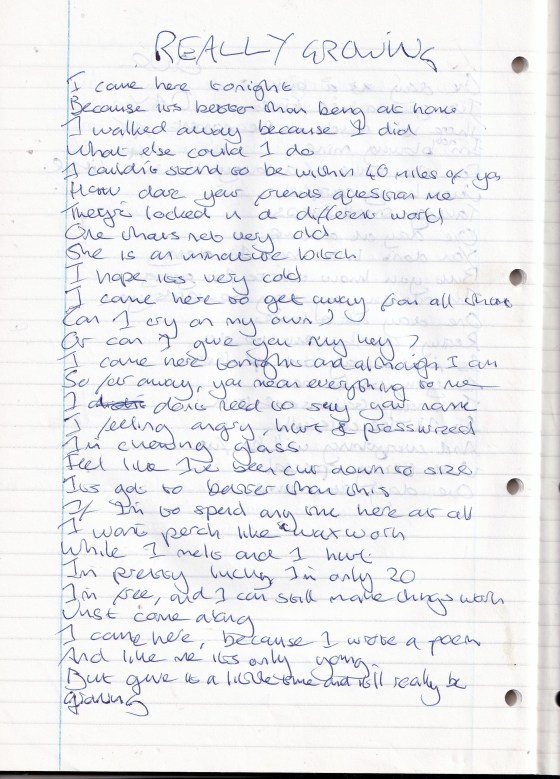 REALLY GROWING
I came here tonight
Because its better than being at home
I walked away because I did
What else could I do
I couldn't stand to be within 40 miles of you
How dare your friends question me
They're locked in a different world
One thats not very old
She is an immature bitch
I hope its very cold
I came here to get away from all that
Can I cry on my own,
Or can I give you my key?
I came here tonight and although I am
So far away, you mean everything to me
I don't need to say your name
I feeling angry, hurt & pressurized
I'm chewing glass
Feel like I've been cut down to size
Its got to better than this
If I'm to spend any time here at all
I wont perch like a waxwork
While I melt and I hurt.
I'm pretty lucky, I'm only 20
I'm free, and I can still make things work
Just come along
I came here, because I wrote a poem
And like me its only young,
But give it a little time and it'll really be
growing